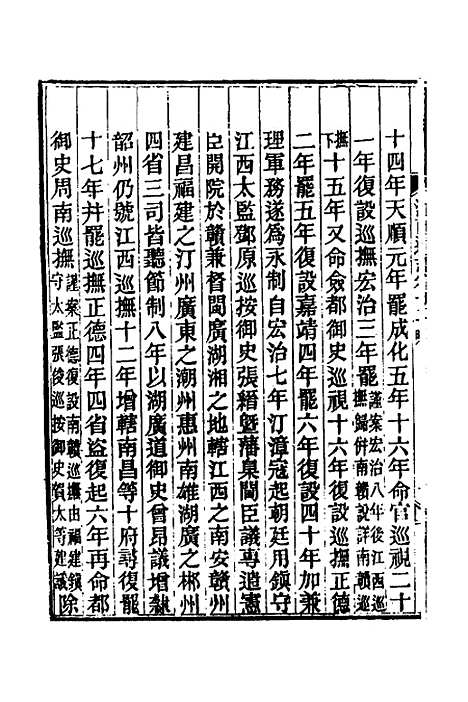 十四年天順元年罷成化五年十六年命官巡視二十
一年復設巡撫宏治三年罷謹案宏治八年後江西巡撫歸併南贛設詳南贛巡
撫下十五年又命僉都御史巡視十六年復設巡撫正德
二年罷五年復設嘉靖四年罷六年復設四十年加兼
理軍務遂爲永制自宏治七年汀漳寇起朝廷用鎭守
江西太監鄧原巡按御史張縉曁藩臬閫臣議專遣憲
臣開院於贛兼督閩廣湖湘之地轄江西之南安贛州
建昌福建之汀州廣東之潮州惠州南雄湖廣之郴州
四省三司皆聽節制八年以湖廣道御史曾昂議增隸
韶州仍號江西巡撫十二年增轄南昌等十府尋復罷
十七年并罷巡撫正德四年四省盜復起六年再命都
御史周南巡撫謹案正德復設南贛巡撫由福建鎮守太監張後巡按御史賀太等建議除